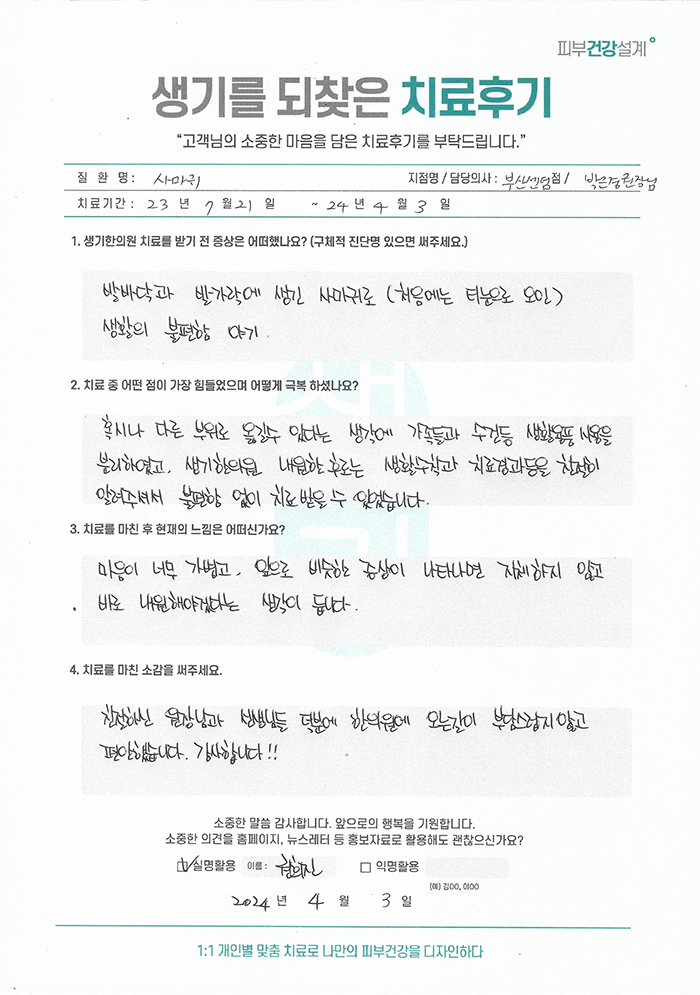 피부건강설계
생기를 되찾은 치료후기
“고객님의 소중한 마음을 담은 치료후기를 부탁드립니다.”
질 환 명 : 사마귀 지점명 / 담당의사 : 부산센텀점 / 박은중원장님
치료기간 : 23 년 7 월 21 일 ~ 24 년 4 월 3 일
1. 생기한의원 치료를 받기 전 증상은 어떠했나요? (구체적 진단명 있으면 써주세요.)
발바닥과 발가락에 생긴 사마귀로 (처음에는 티눈으로 오인)
생활의 불편함 야기.
2. 치료 중 어떤 점이 가장 힘들었으며 어떻게 극복 하셨나요?
혹시나 다른 부위로 옮길수 있다는 생각에 가족들과 수건등 생활용품 사용을
분리하였고, 생기한의원 내원한 후로는 생활수칙과 치료경과등을 친절히
알려주셔서 불편함 없이 치료 받을 수 있었습니다.
3. 치료를 마친 후 현재의 느낌은 어떠신가요?
마음이 너무 가볍고, 앞으로 비슷한 증상이 나타나면 지체하지 않고
바로 내원해야겠다는 생각이 듭니다.
4. 치료를 마친 소감을 써주세요.
친절하신 원장님과 선생님들 덕분에 한의원에 오는길이 부담스럽지않고
편안했습니다. 감사합니다!!
소중한 말씀 감사합니다. 앞으로의 행복을 기원합니다.
소중한 의견을 홈페이지, 뉴스레터 등 홍보자료로 활용해도 괜찮으신가요?
실명활용 이름 : 익명활용
(예) 김OO, 이OO
2024 년 4 월 3 일
1:1 개인별 맞춤 치료로 나만의 피부건강을 디자인하다